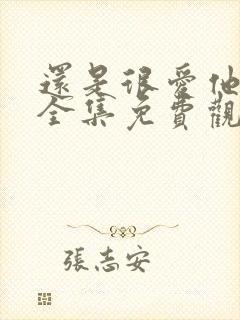 還是很愛他
全集免費觀
張志安